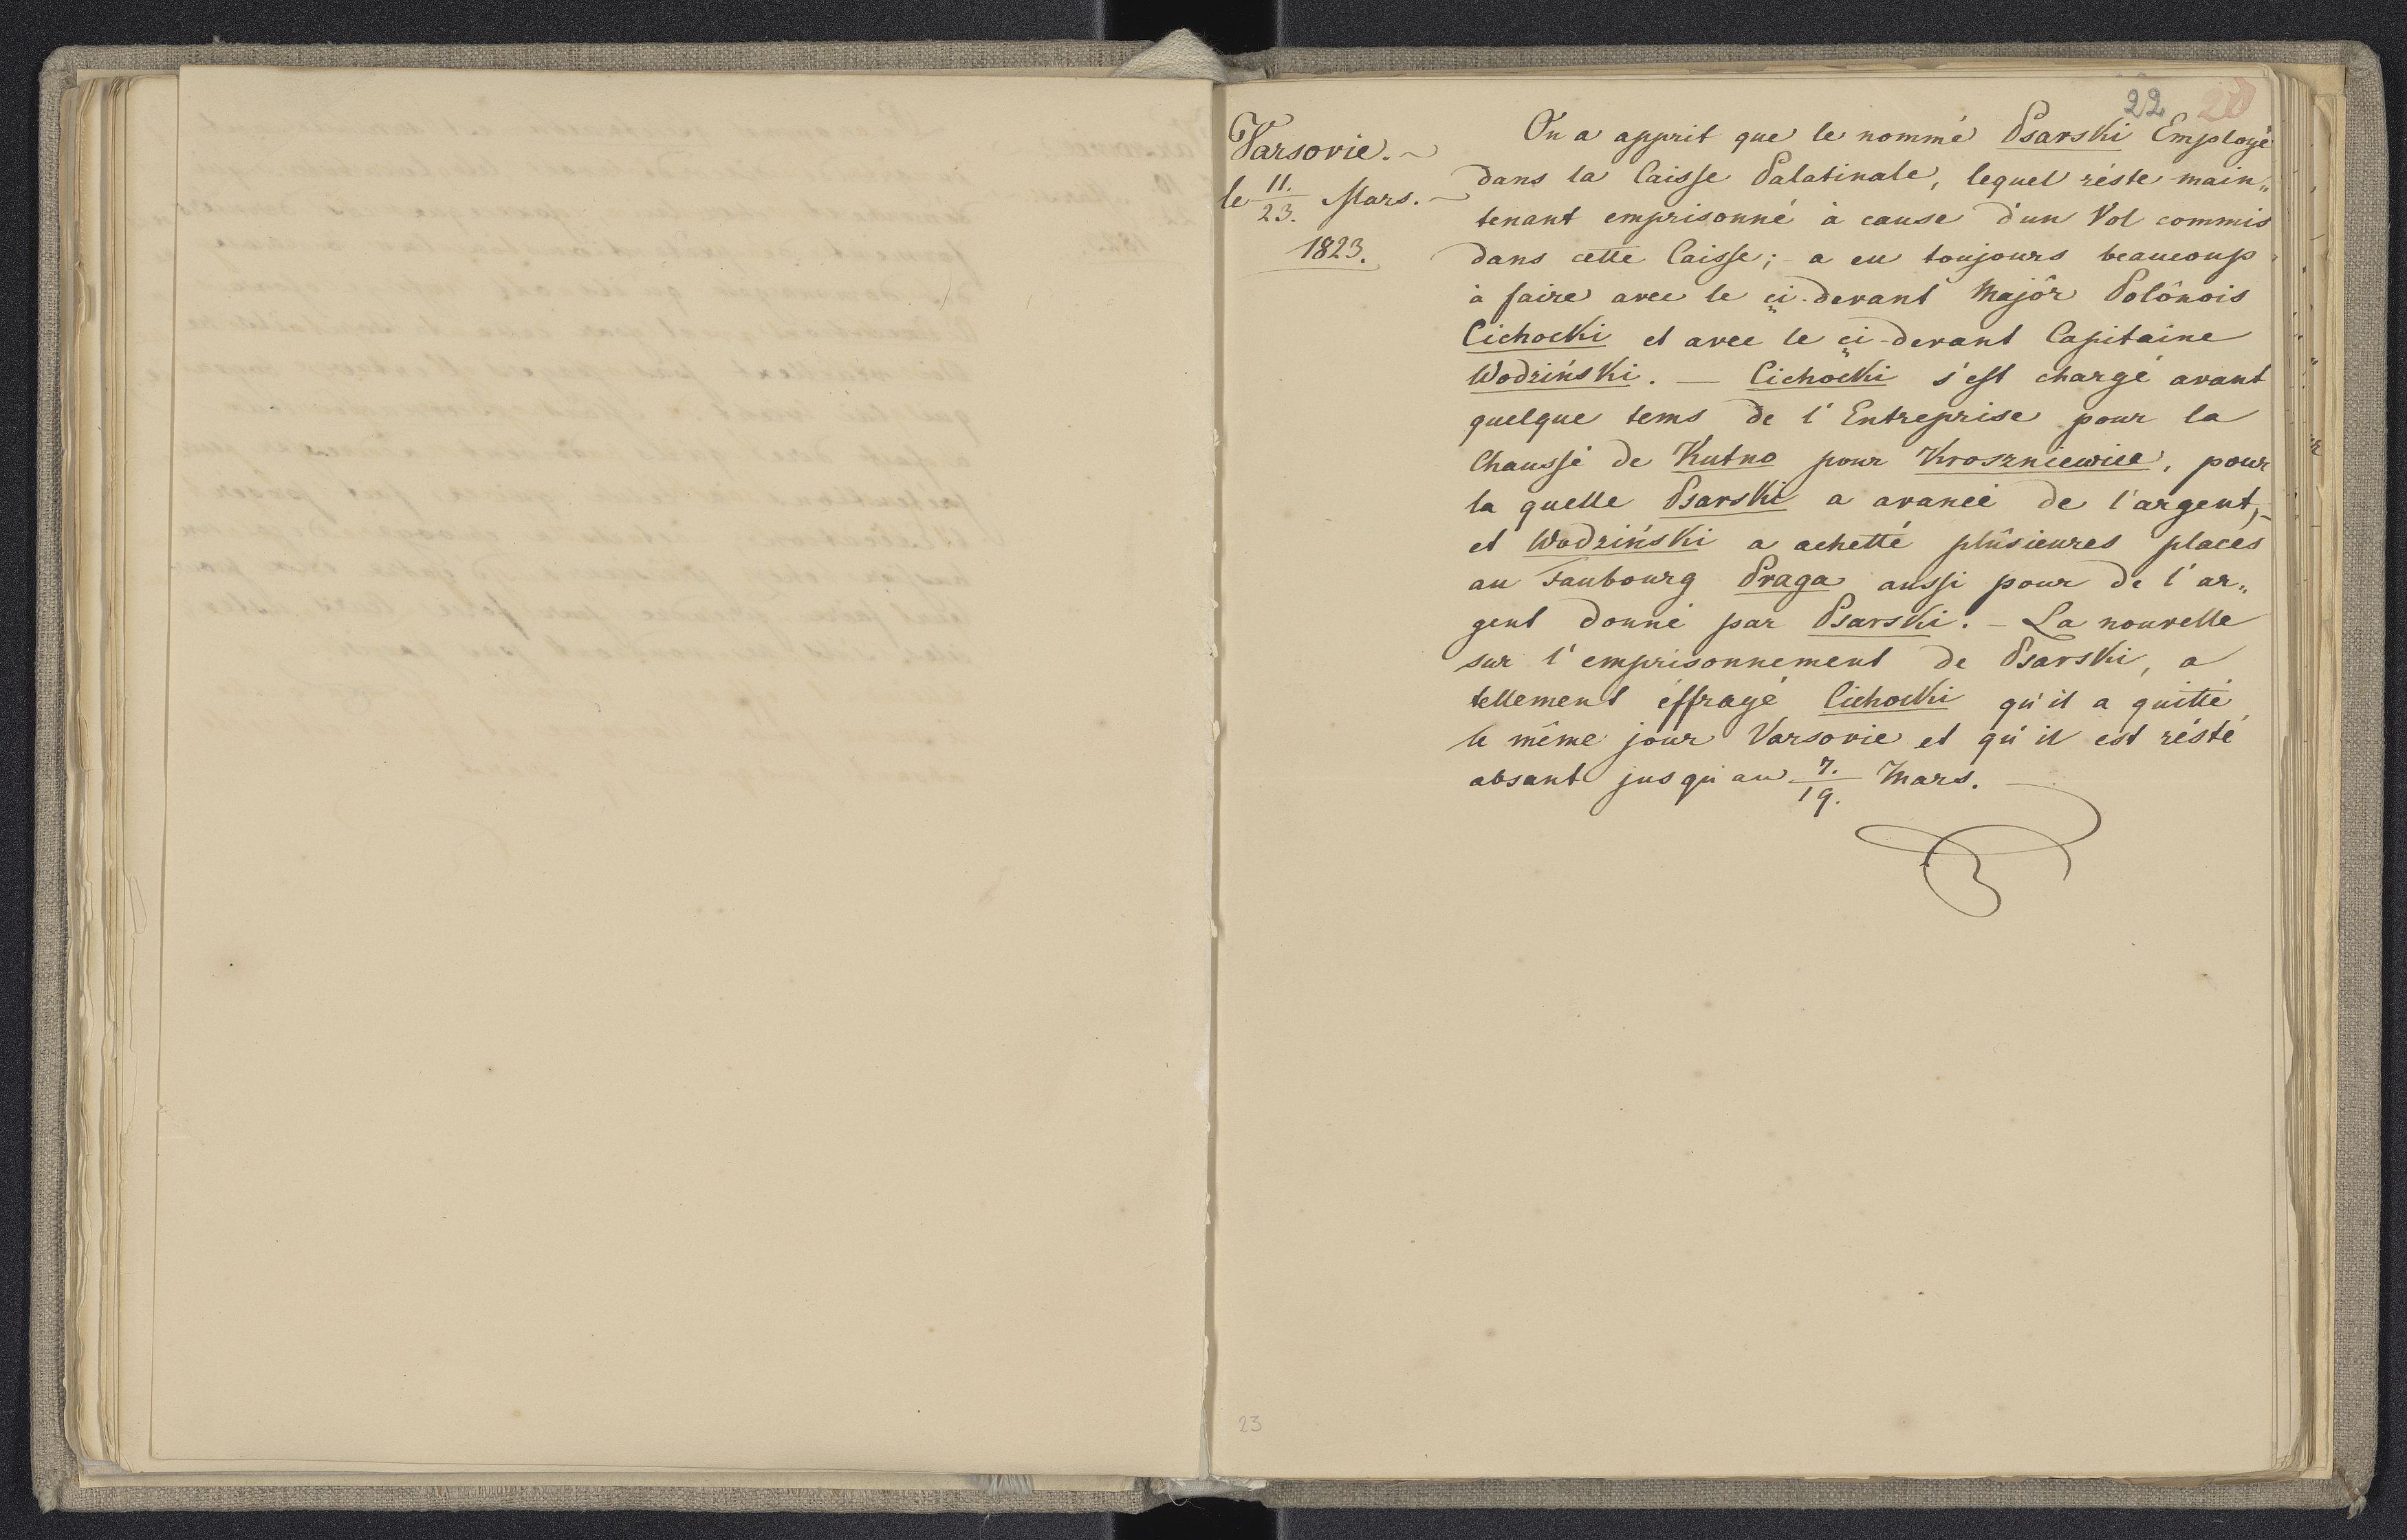 22 20
Varsovie.
le 11./23. Mars.
1823.
On a apprit que le nommé Psarski Employé
dans la Caisse Palatinale, lequel réste main„
tenant emprisonné à cause d'un Vol commis
dans cette Caisse; - a eu toujours beaucoup
à faire avec le ci-devant Majôr Polônois
Cichocki et avec le ci-devant Capitaine
Wodziński. — Cichocki s'est chargé avant
quelque tems de l'Entreprise pour la
Chaussé de Kutno pour Kroszniewice, pour
la quelle Psarski a avancé de l'argent,-
et Wodziński a achetté plûsieures places
au Faubourg Praga aussi pour de l'ar„
gent donné par Psarski. - La nouvelle
sur l'emprisonnement de Psarski, a
tellement éffrayé Cichocki qu'il a quitté
le même jour Varsovie et qu'il est résté
absant jusqu'au 7./19. Mars. —
23